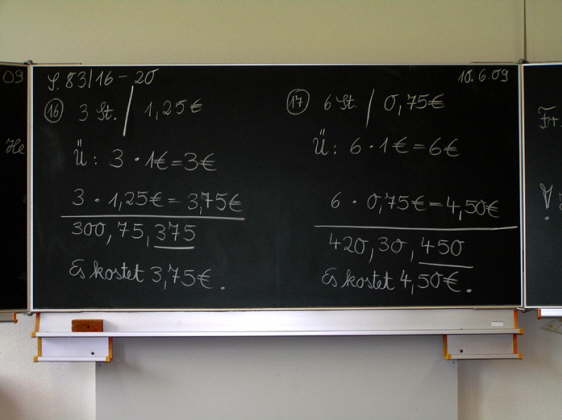 09
He
S. 83/16-20
10.6.09
16 3 St. / 1,25€
Ü: 3 · 1€ = 3€
3 · 1,25€ = 3,75€
300, 75, 375
Es kostet 3,75€.
17 6 St. / 0,75€
Ü: 6 · 1€ = 6€
6 · 0,75€ = 4,50€
420, 30, 450
Es kostet 4,50€.